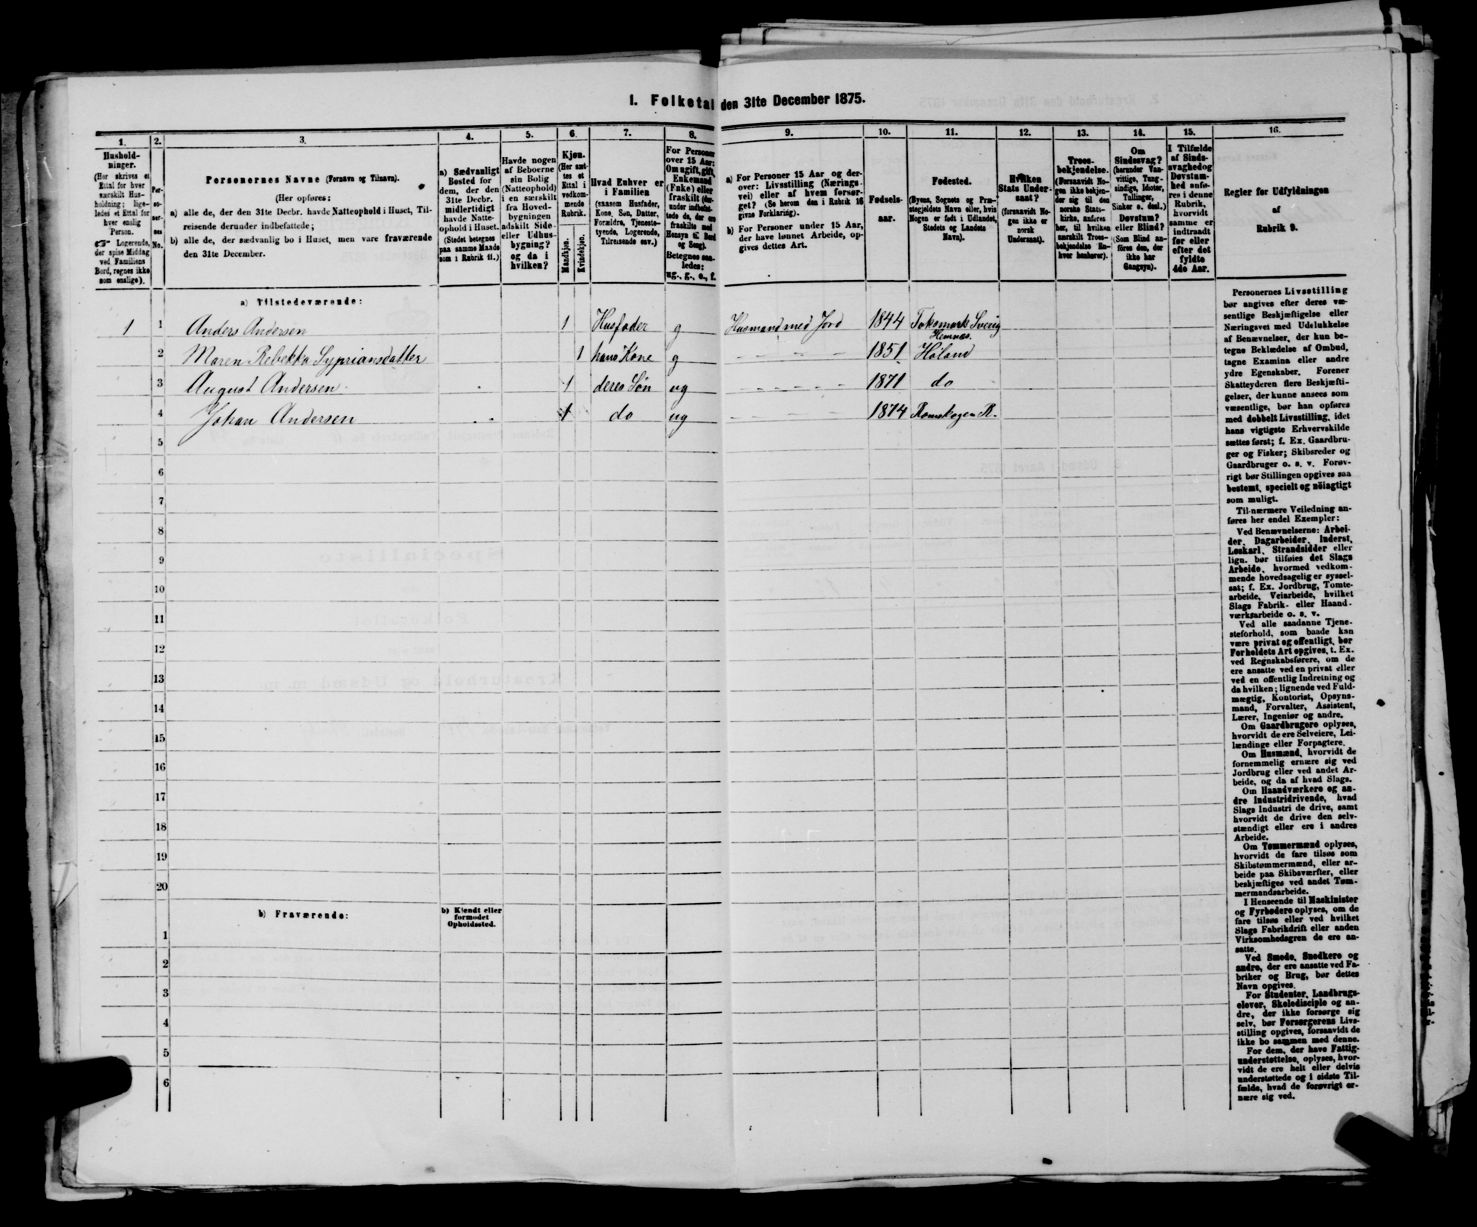 1. Folketal den 31te December 1875.
1.
Hushold-
ninger.
(Her skrives et
Ettal for hver
særskilt Hus-
holdning; lige-
ledes et Ettal for
hver enslig
Person.
☞ Logerende,
der spise Middag
ved Familiens
Bord, regnes ikke
som enslige).
2.
Per-
so-
ner-
nes
No.
3.
Personernes Navne (Fornavn og Tilnavn).
(Her opføres:
a) alle de, der den 31te Decbr. havde Natteophold i Huset, Til-
reisende derunder indbefattede;
b) alle de, der sædvanlig bo i Huset, men vare fraværende
den 31te December.
4.
a) Sædvanligt
Bosted for
dem, der den
31te Decbr.
midlertidigt
havde Natte-
ophold i Huset.
(Stedet betegnes
paa samme Maade
som i Rubrik 11.)
5.
Havde nogen
af Beboerne
sin Bolig
(Natteophold)
i en særskilt
fra Hoved-
bygningen
adskilt Side-
eller Udhus-
bygning?
og da i
hvilken?
6.
Kjøn.
(Her sæt-
tes et
Ettal i
vedkom-
mende
Rubrik.
Mandkjøn.
Kvindekjøn.
7.
Hvad Enhver er
i Familien
(saasom Husfader,
Kone, Søn, Datter,
Forældre, Tjeneste-
tyende, Logerende,
Tilreisende osv.)
8.
For Personer
over 15 Aar:
Om ugift, gift,
Enkemand
(Enke) eller
fraskilt (der-
under indbefat-
tede de, der ere
fraskilte med
Hensyn til Bord
og Seng).
Betegnes saa-
ledes:
ug., g., e., f.
9.
a) For Personer 15 Aar og der-
over: Livsstilling (Nærings-
vei) eller af hvem forsør-
get? (Se herom den i Rubrik 16
givne Forklaring).
b) For Personer under 15 Aar,
der have lønnet Arbeide, op-
gives dettes Art.
10.
Fødsels-
aar.
11.
Fødested.
(Byens, Sognets og Præ-
stegjeldets Navn eller, hvis
Nogen er født i Udlandet,
Stedets og Landets
Navn).
12.
Hvilken
Stats Under-
saat?
(forsaavidt No-
gen ikke er
norsk
Undersaat).
13.
Troes-
bekjendelse.
(Forsaavidt No-
gen ikke bekjen-
der sig til den
norske Stats-
kirke, anføres
her, til hvilken
særskilt Troes-
bekjendelse En-
hver henhører).
14.
Om
Sindssvag?
(herunder Van-
vittige, Tung-
sindige, Idioter,
Tullinger,
Sinker o. desl.)
Døvstum?
eller Blind?
(Som Blind an-
føres den, der
ikke har
Gangsyn).
15.
I Tilfælde
af Sinds-
svaghed og
Døvstum-
hed anfø-
res i denne
Rubrik,
hvorvidt
samme er
indtraadt
før eller
efter det
fyldte
4de Aar.
16.
Regler for Udfyldningen
af
Rubrik 9.
a) Tilstedeværende:
1 1 Anders Andersen 1 Husfader g Husmand med Jord 1844 Toksmark Sverig
Hemnes
2 Maren Rebekka Sypriansdatter 1 hans Kone g 1851 Høland
3 August Andersen 1 deres Søn ug 1871 do
4 Johan Andersen 1 do ug 1874 Romskogen R.
5
6
7
8
9
10
11
12
13
14
15
16
17
18
19
20
b) Fraværende:
b) Kjendt eller
formodet
Opholdssted.
1
2
3
4
5
6
Personernes Livsstilling
bør angives efter deres væ-
sentlige Beskjæftigelse eller
Næringsvei med Udelukkelse
af Benævnelser, der kun be-
tegne Beklædelse af Ombud,
tagne Examina eller andre
ydre Egenskaber. Forener
Skatteyderen flere Beskjæfti-
gelser, der kunne ansees som
væsentlige, bør han opføres
med dobbelt Livsstilling, idet
hans vigtigste Erhvervskilde
sættes først; f. Ex. Gaardbru-
ger og Fisker; Skibsreder og
Gaardbruger o. s. v. Forøv-
rigt bør Stillingen opgives saa
bestemt, specielt og nöiagtigt
som muligt.
Til nærmere Veiledning an-
føres her endel Exempler:
Ved Benævnelserne: Arbei-
der, Dagarbeider, Inderst,
Løskarl, Strandsidder eller
lign. bør tilføies det Slags
Arbeide, hvormed vedkom-
mende hovedsagelig er syssel-
sat; f. Ex. Jordbrug, Tomte-
arbeide, Veiarbeide, hvilket
Slags Fabrik- eller Haand-
værksarbeide o. s. v.
Ved alle saadanne Tjene-
steforhold, som baade kan
være privat og offentligt, bør
Forholdets Art opgives, t. Ex.
ved Regnskabsførere, om de
ere ansatte ved en privat eller
ved en offentlig Indretning og
da hvilken; lignende ved Fuld-
mægtig, Kontorist, Opsyns-
mand, Forvalter, Assistent,
Lærer, Ingeniør og andre.
Om Gaardbrugere oplyses,
hvorvidt de ere Selveiere, Lei-
lændinge eller Forpagtere.
Om Husmænd, hvorvidt de
fornemmelig ernære sig ved
Jordbrug eller ved andet Ar-
beide, og da af hvad Slags.
Om Haandværkere og an-
dre Industridrivende, hvad
Slags Industri de drive, samt
hvorvidt de drive den selv-
stændigt eller ere i andres
Arbeide.
Om Tømmermænd oplyses,
hvorvidt de fare tilsøs som
Skibstømmermænd, eller ar-
beide paa Skibsværfter, eller
beskjæftiges ved andet Tøm-
mermandsarbeide.
I Henseende til Maskinister
og Fyrbødere oplyses, om de
fare tilsøs eller ved hvilket
Slags Fabrikdrift eller anden
Virksomhedsgren de ere an-
satte.
Ved Smede, Snedkere og
andre, der ere ansatte ved Fa-
briker og Brug, bør dettes
Navn opgives.
For Studenter, Landbrugs-
elever, Skoledisciple og an-
dre, der ikke forsørge sig
selv, bør Forsørgerens Livs-
stilling opgives, forsaavidt de
ikke bo sammen med denne.
For dem, der have Fattig-
understøttelse, oplyses, hvor-
vidt de ere helt eller delvis
understøttede og i sidste Til-
fælde, hvad de forøvrigt er-
nære sig ved.